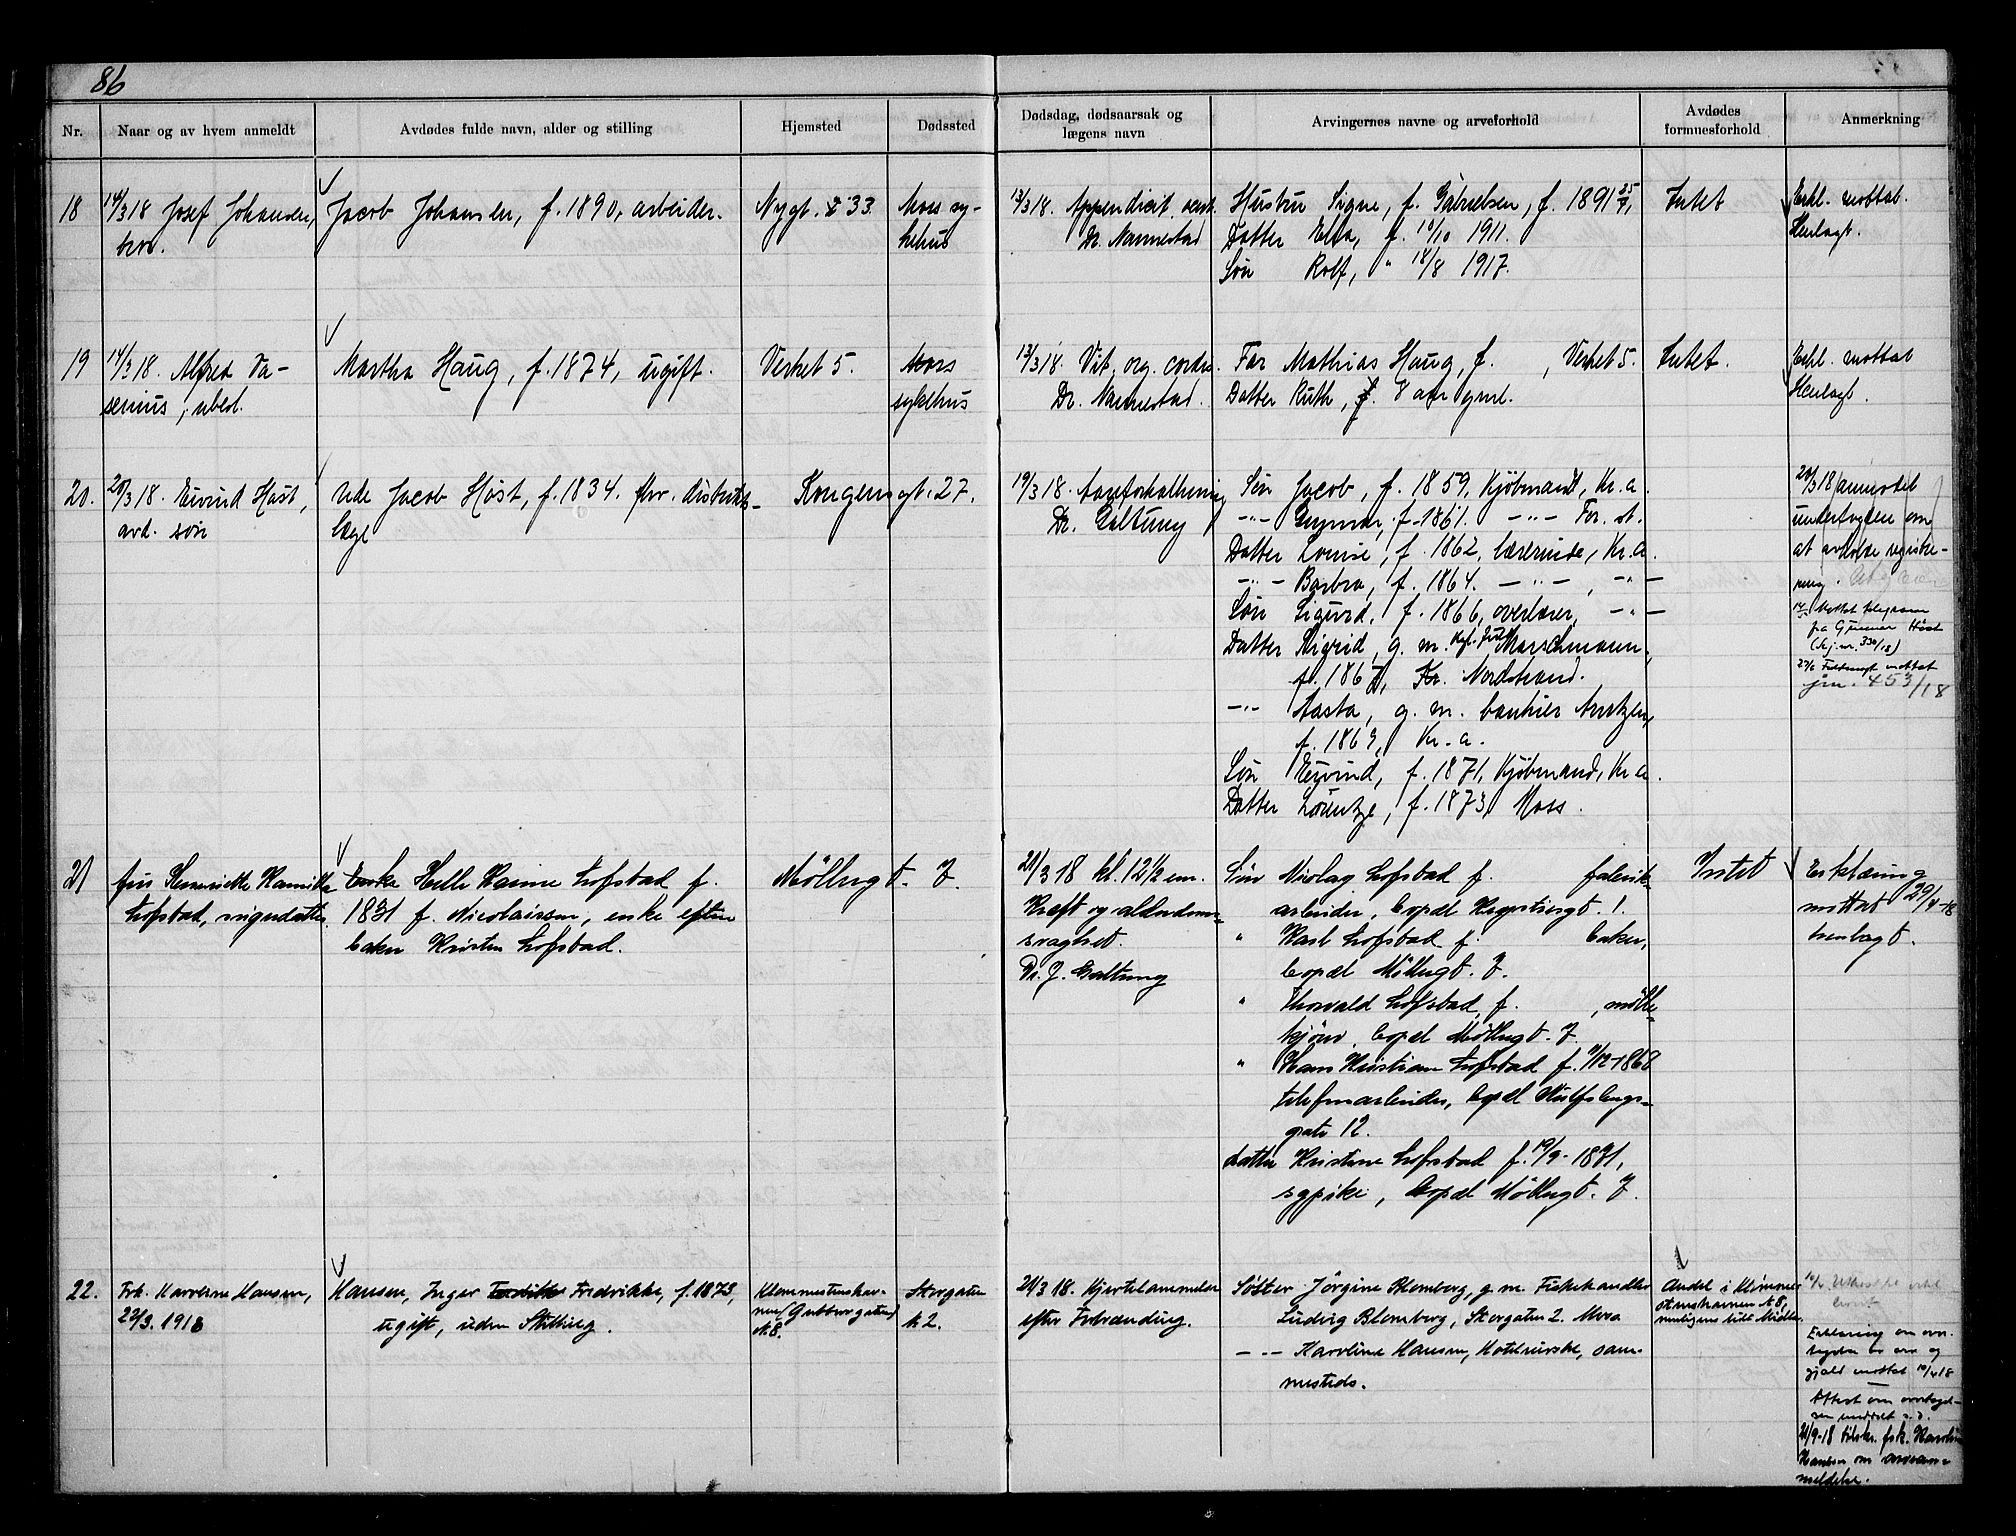 86
Nr.
Naar og av hvem anmeldt
Avdødes fulde navn, alder og stilling
Hjemsted
Dødssted
Dødsdag, dødsaarsak og
lægens navn
Arvingernes navne og arveforhold
Avdødes
formuesforhold
Anmerkning
18
14/3 18 Josef Johansen,
bror.
Jacob Johansen, f. 1890, arbeider.
Nygt. 33.
Moss sy-
kehus
13/3 18. Appendicit.
Dr. Nannestad
Hustru Signe, f. Gabrielsen, f. 1891 25/7,
Datter Elsa, f. 10/10 1911.
Søn Rolf, " 18/8 1917.
Intet
Erkl. mottat.
Henlagt.
19
14/3 18. Alfred Va-
senius, ubesl.
Martha Haug, f. 1874, ugift.
Verket 5.
Moss
sykehus
13/3 18. Vit. org. cordis.
Dr. Nannestad.
Far Mathias Haug, f. , Verket 5.
Datter Ruth, f. 8 aar gml.
Intet.
Erkl. mottat
Henlagt.
20.
20/3 18. Eivind Høst,
avd. søn
Ude Jacob Høst, f. 1834. fhv. distrikts-
læge
Kongens gt. 27.
19/3 18. Aareforkalkning
Dr. Galtung
Søn Jacob, f. 1859, Kjøbmand, Kr.a.
-"- Gunnar, f. 1861. -"- For. st.
Datter Louise, f. 1862, lærerinde, Kr.a.
-"- Barbra, f. 1864. -"-, -"-
Søn Sigurd, f. 1866, overlærer, -"-
Datter Sigrid, g. m. Marschmann,
f. 1867, Kr. Nordstrand.
-"- Aasta, g. m. bankier Arntzen,
f. 1869, Kr.a.
Søn Eyvind, f. 1871, Kjøbmand, Kr.a.
Datter Lorentze, f. 1873, Moss.
20/3 18 anmodet
underfogden om
at avholde registre-
ring.
Mottat telegram
fra Gunnar Høst
(kj. nr. 330/18)
27/6 Fuldmagt mottat
jnr. 453/18
21
fru Henriette Kamilla
Lofstad, svigerdatter.
Enke Helle Hanne Lofstad f.
1831 f. Nicolaissen, enke efter
baker Kristen Lofstad.
Möllegt. 7.
21/3 18 kl. 12 1/2 em.
Kræft og alderdoms-
svaghet.
Dr. J. Galtung
Søn Nicolay Lofstad f. fabrik-
arbeider, bopæl Kongstiergt. 1.
" Karl Lofstad f. baker,
bopæl Möllegt. 7.
" Thorvald Lofstad, f. , mölle-
kjører, bopæl Möllegt. 7.
" Hans Kristian Lofstad f. 11/12-1868
telefonarbeider, bopæl
gate 12.
datter Kristine Lofstad f. 19/9-1871,
sypike, bopæl Möllegt. 7.
Intet
Erklæring
mottat 29/4-18
henlagt.
22.
Frk. Karoline Hansen,
22/3. 1918
Hansen, Inger Fredrikke, f. 1873,
ugift, uden Stilling.
N. 8.
Storgaten
N. 2.
21/3 18. Hjertelammelse
efter Forbrænding.
Søster Jörgine Blomberg, g. m. Fiskehandler
Ludvig Blomberg, Storgaten 2. Moss
-"- Karoline Hansen, Hotelværtske, sam-
mesteds.
Andel i
N. 8,
Erklæring om over-
tagelse av arv og
gjæld mottat 19/4 18
Attest om overtagel-
sen meddelt s. d.
21/9-18 tilskr. frk. Karoline
Hansen om arvean-
meldelse.